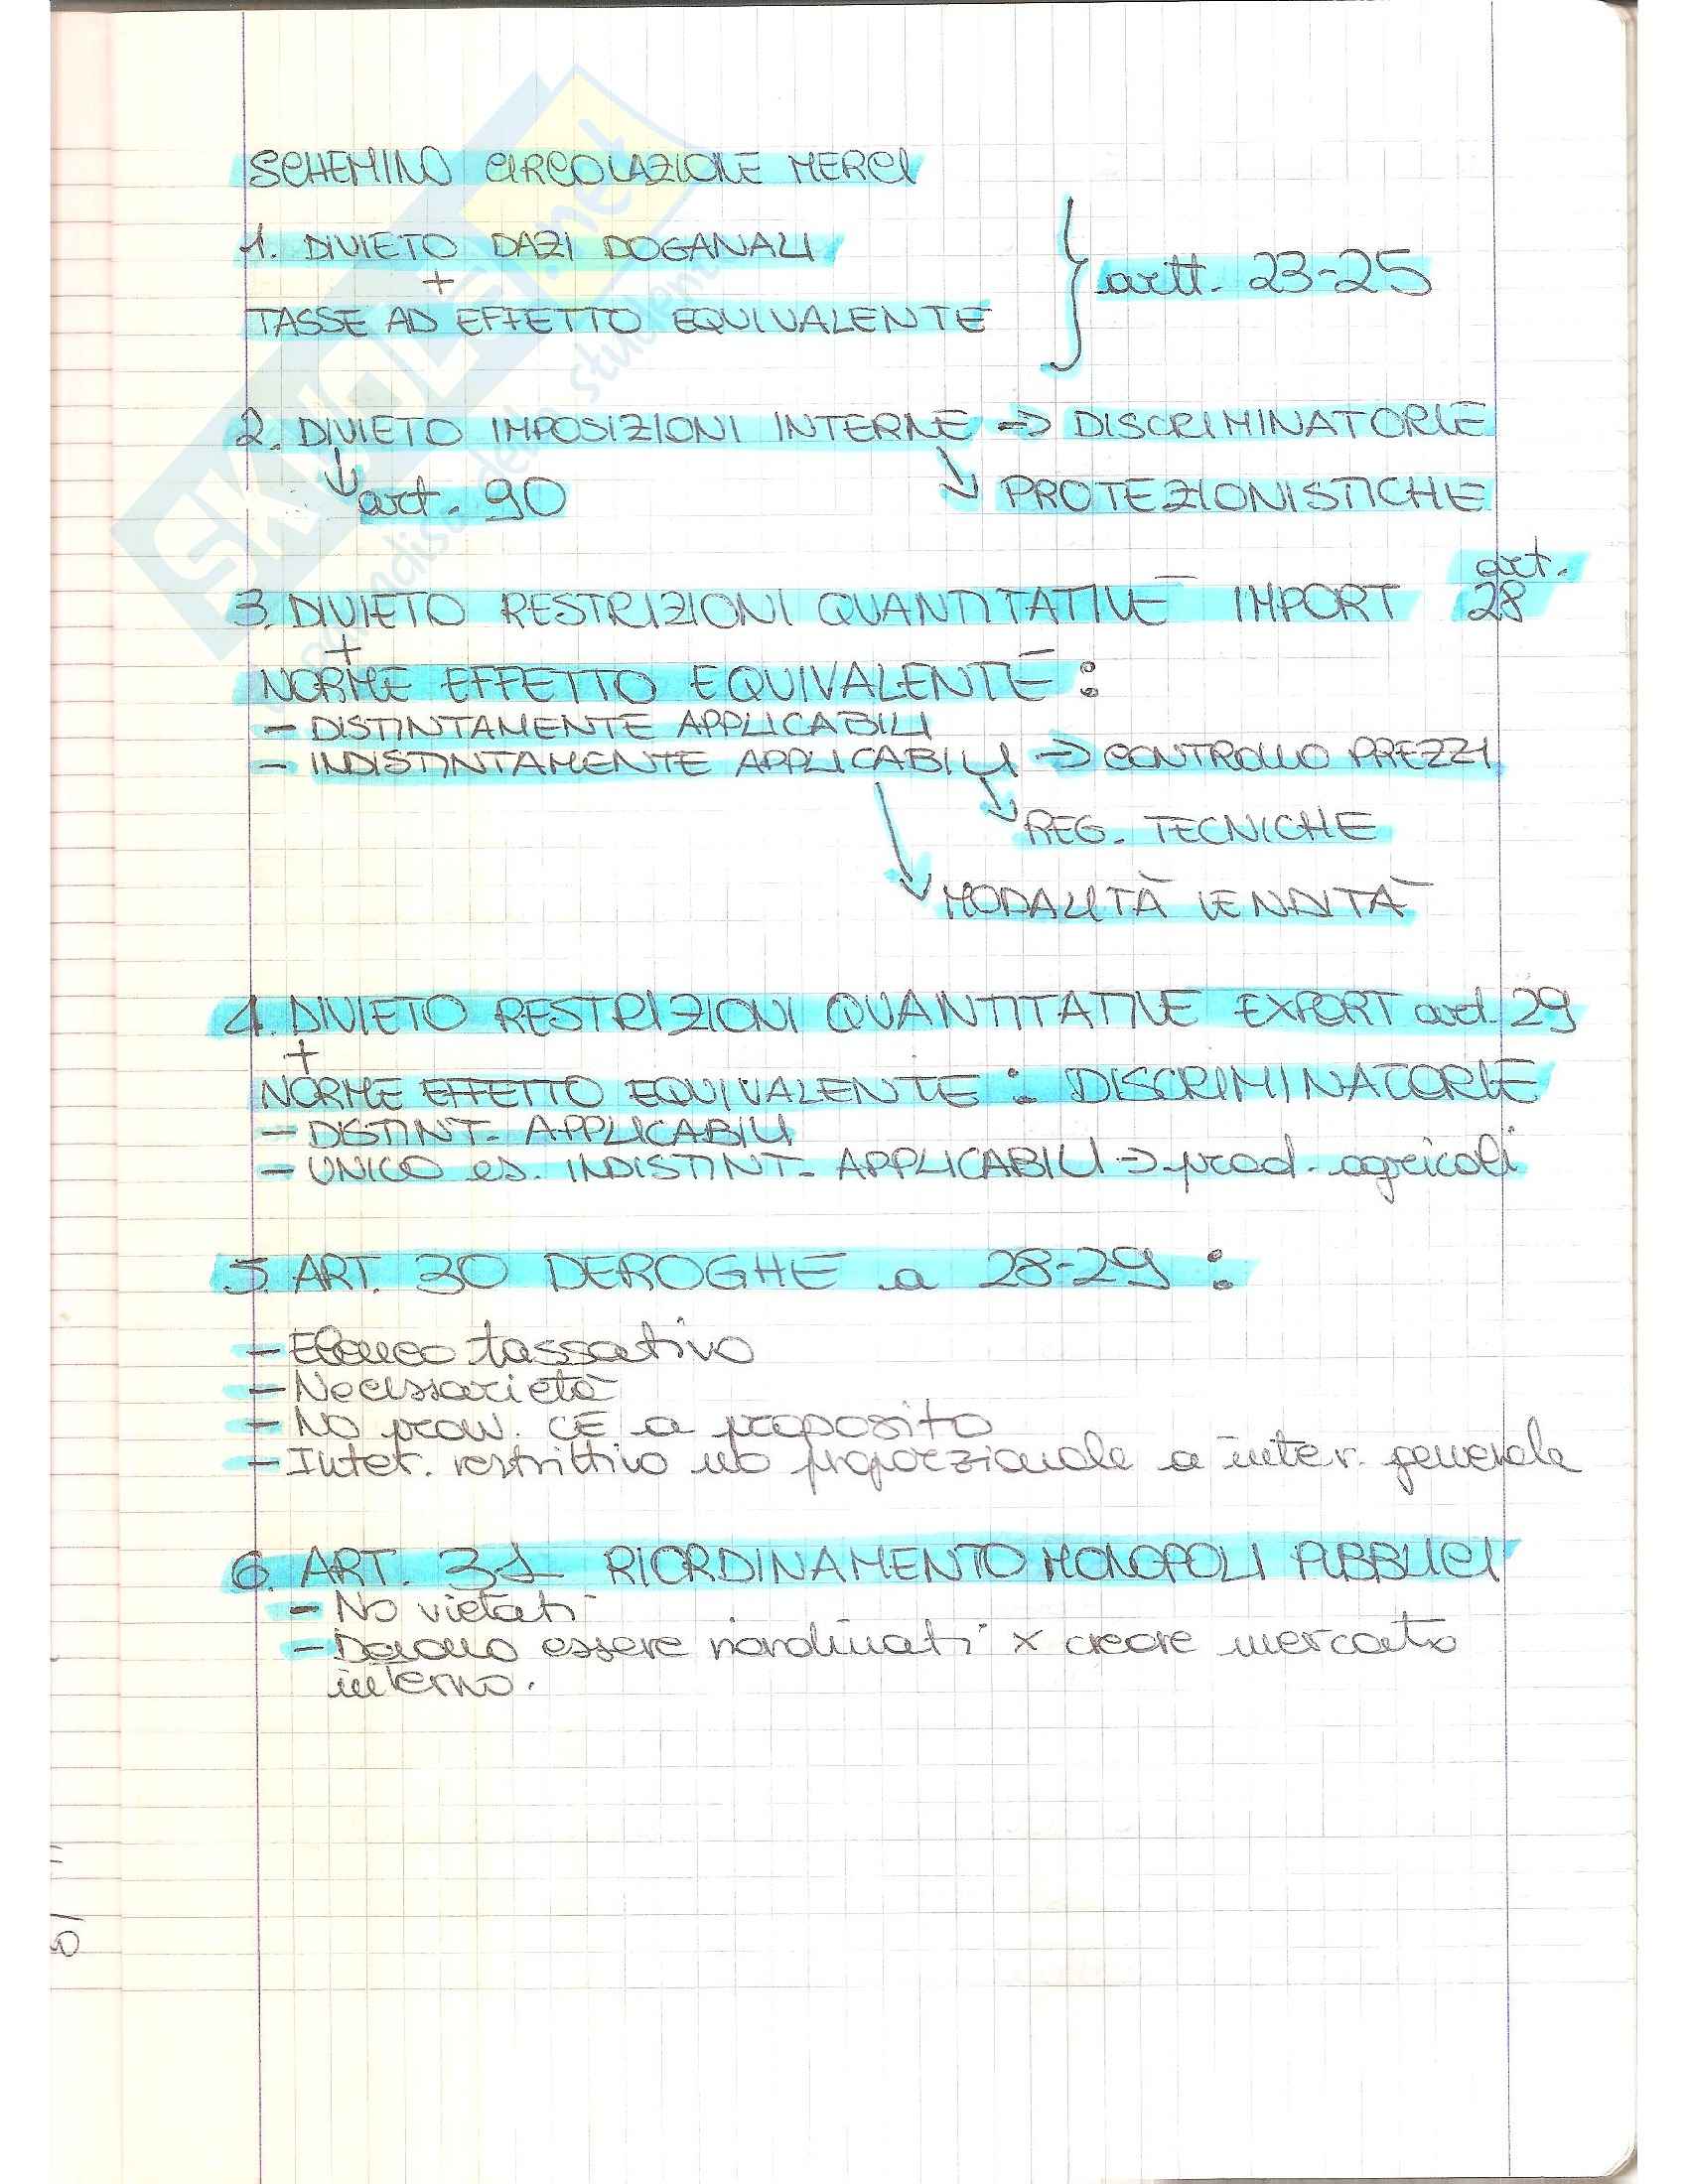 SCHEMINO CIRCOLAZIONE MERCI
1. DIVIETO DAZI DOGANALI
+
TASSE AD EFFETTO EQUIVALENTE
} artt. 23-25
2. DIVIETO IMPOSIZIONI INTERNE → DISCRIMINATORIE
↓ art. 90 ↘ PROTEZIONISTICHE
3. DIVIETO RESTRIZIONI QUANTITATIVE IMPORT art. 28
+
NORME EFFETTO EQUIVALENTE:
- DISTINTAMENTE APPLICABILI
- INDISTINTAMENTE APPLICABILI → CONTROLLO PREZZI
↘ REG. TECNICHE
↘ MODALITÀ VENDITA
4. DIVIETO RESTRIZIONI QUANTITATIVE EXPORT art. 29
+
NORME EFFETTO EQUIVALENTE: DISCRIMINATORIE
- DISTINT. APPLICABILI
- UNICO es. INDISTINT. APPLICABILI → prod. agricoli
5. ART. 30 DEROGHE a 28-29:
- Elenco tassativo
- Necessarietà
- No provv. CE a proposito
- Inter. restrittivo no proporzionale a inter. generale
6. ART. 31 RIORDINAMENTO MONOPOLI PUBBLICI
- No vietati
- Devono essere riordinati x creare mercato
interno.
SKUOLA.net